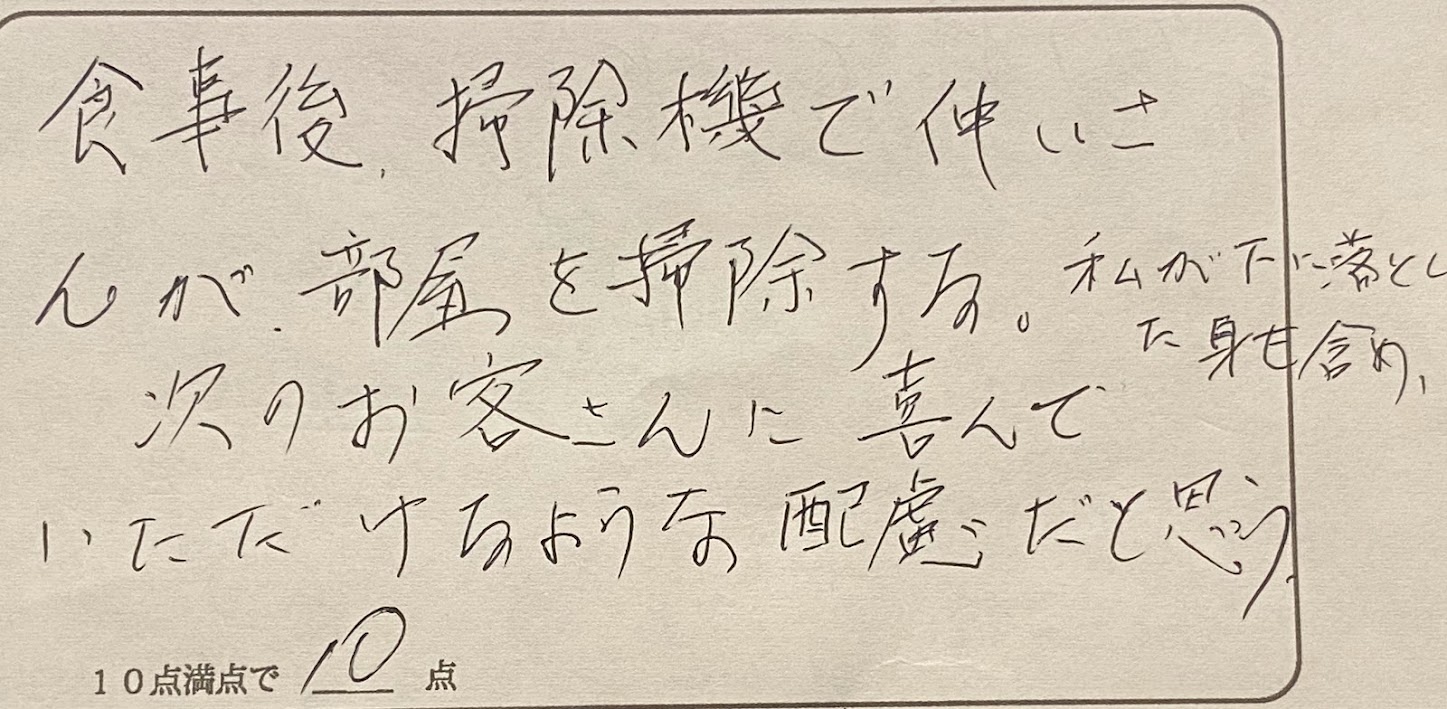 食事後、掃除機で仲いさ
んが、部屋を掃除する。私が下に落とし
た身も含め、
次のお客さんに喜んで
いただけるような配慮だと思う。
10点満点で 10 点